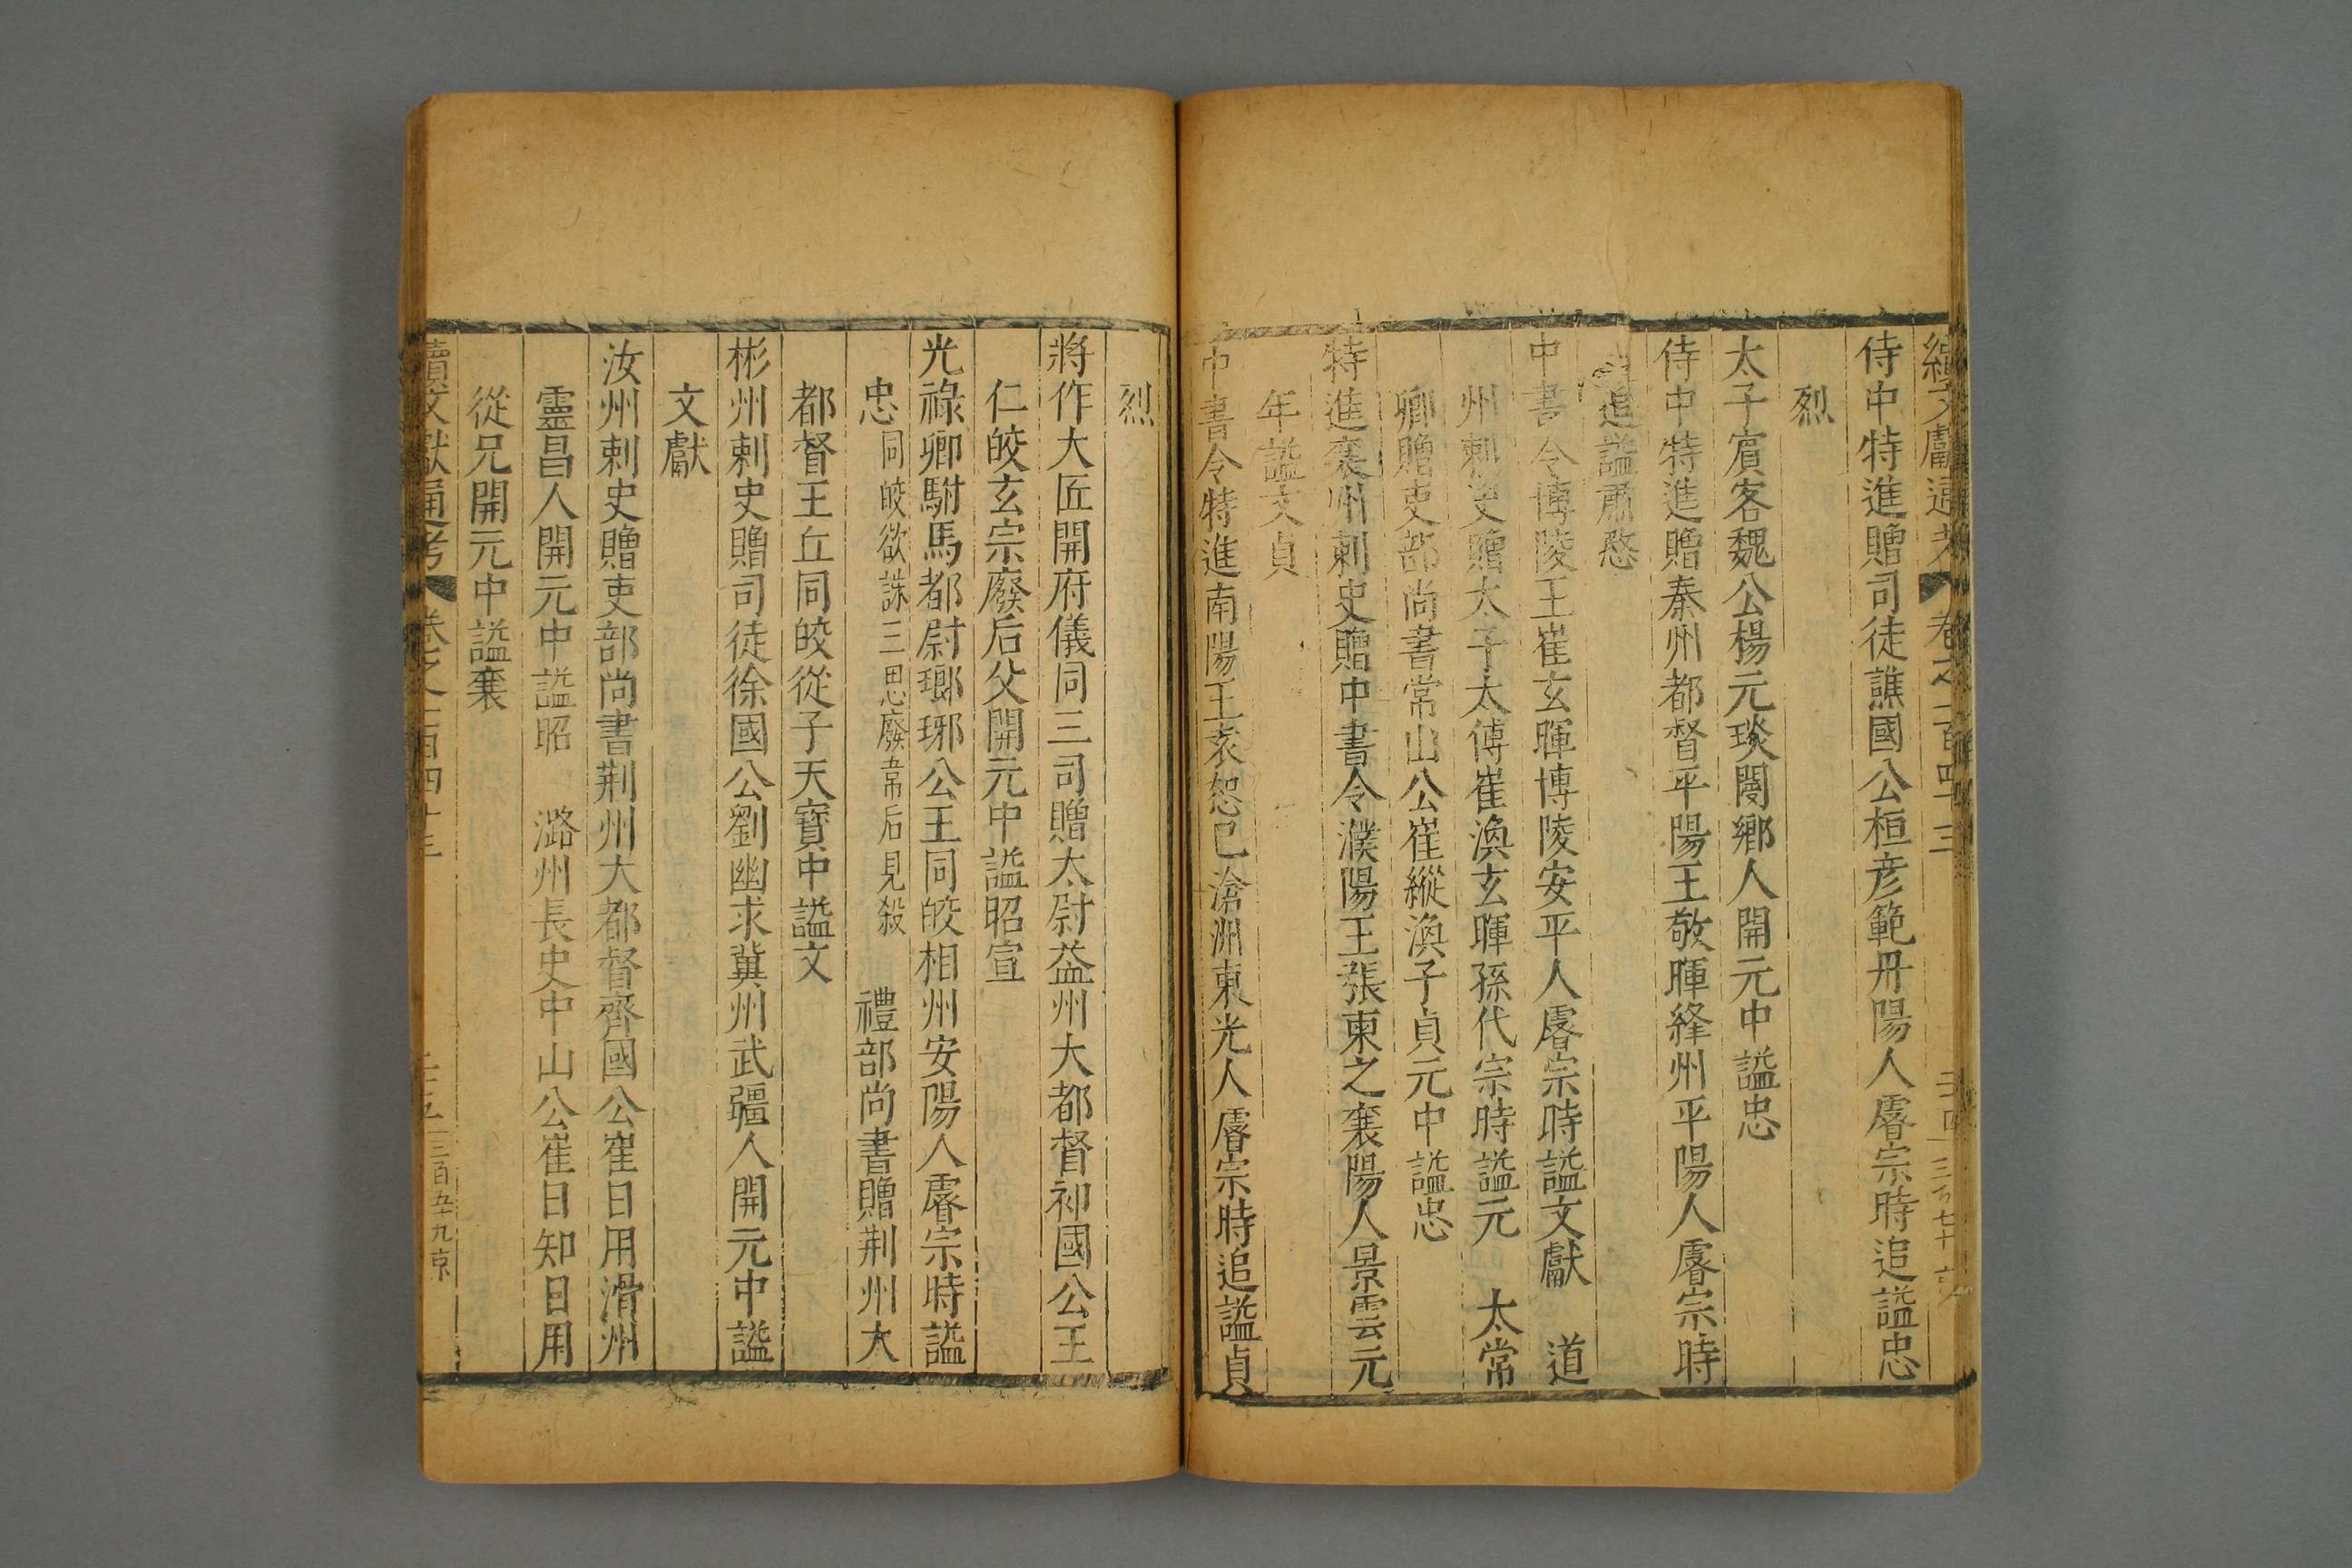 續文獻通考 卷之一百四十三
侍中特進贈司徒譙國公桓彥範丹陽人睿宗時追謚忠
烈
太子賓客魏公楊元琰閿鄉人開元中謚忠
侍中特進贈秦州都督平陽王敬暉絳州平陽人睿宗時
追謚肅愍
中書令博陵王崔玄暉博陵安平人睿宗時謚文獻 道
州刺史贈太子太傅崔渙玄暉孫代宗時謚元 太常
卿贈吏部尚書常山公崔縱渙子貞元中謚忠
特進襄州刺史贈中書令濮陽王張柬之襄陽人景雲元
年謚文貞
中書令特進南陽王袁恕己滄洲東光人睿宗時追謚貞
烈
將作大匠開府儀同三司贈太尉益州大都督祁國公王
仁皎玄宗廢后父開元中謚昭宣
光祿卿駙馬都尉瑯琊公王同皎相州安陽人睿宗時謚
忠同皎欲誅三思廢韋后見殺 禮部尚書贈荆州大
都督王丘同皎從子天寶中謚文
彬州刺史贈司徒徐國公劉幽求冀州武彊人開元中謚
文獻
汝州刺史贈吏部尚書荆州大都督齊國公崔日用滑州
靈昌人開元中謚昭 潞州長史中山公崔日知日用
從兄開元中謚襄
續文獻通考 卷之一百四十三 三百五十九京